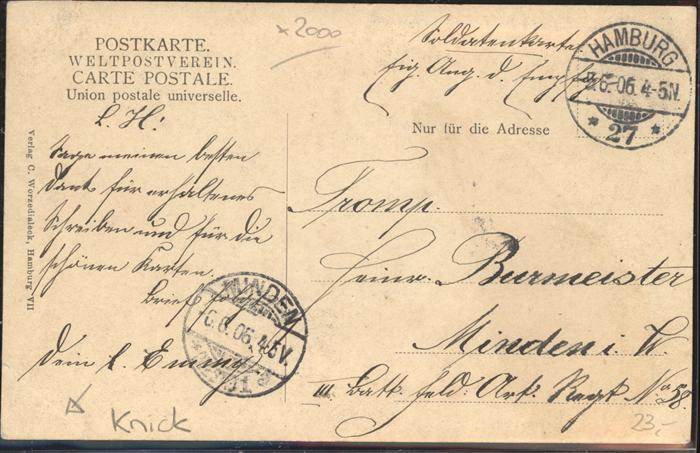 POSTKARTE.
WELTPOSTVEREIN.
CARTE POSTALE.
Union postale universelle.
x 2000
Soldatenkarte
Eig. Ang. d. Empfg
HAMBURG
5.6.06. 4-5N.
* 27 *
Nur für die Adresse
L. H!
Sage meinen besten
Dank für erhaltenes
Schreiben und für die
schönen Karten.
Brief folgt
Dein l. Emmy
MINDEN
6.6.06. 4-5V.
Tromp.
Heinr. Burmeister
Minden i. W.
III Batt. Feld: Art. Regt No 58.
Verlag C. Worzedialeck, Hamburg-VII
Knick
23,-